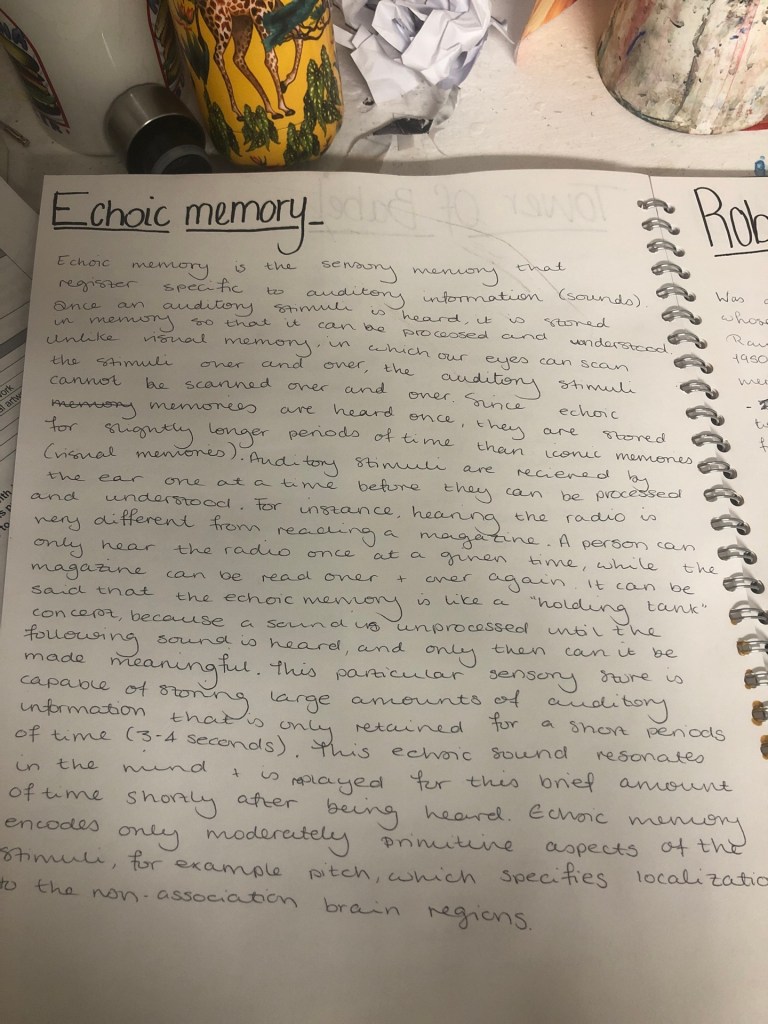 Echoic memory
Echoic memory is the sensory memory that
register specific to auditory information (sounds).
Once an auditory stimuli is heard, it is stored
in memory so that it can be processed and understood.
Unlike visual memory, in which our eyes can scan
the stimuli over and over, the auditory stimuli
cannot be scanned over and over. Since echoic
memory memories are heard once, they are stored
for slightly longer periods of time than iconic memories
(visual memories). Auditory stimuli are recieved by
the ear one at a time before they can be processed
and understood. For instance, hearing the radio is
very different from reading a magazine. A person can
only hear the radio once at a given time, while the
magazine can be read over + over again. It can be
said that the echoic memory is like a "holding tank"
concept, because a sound is unprocessed until the
following sound is heard, and only then can it be
made meaningful. This particular sensory store is
capable of storing large amounts of auditory
information that is only retained for a short periods
of time (3-4 seconds). This echoic sound resonates
in the mind + is replayed for this brief amount
of time shortly after being heard. Echoic memory
encodes only moderately primitive aspects of the
stimuli, for example pitch, which specifies localizatio
to the non-association brain regions.
Rob
Was
whose
1950